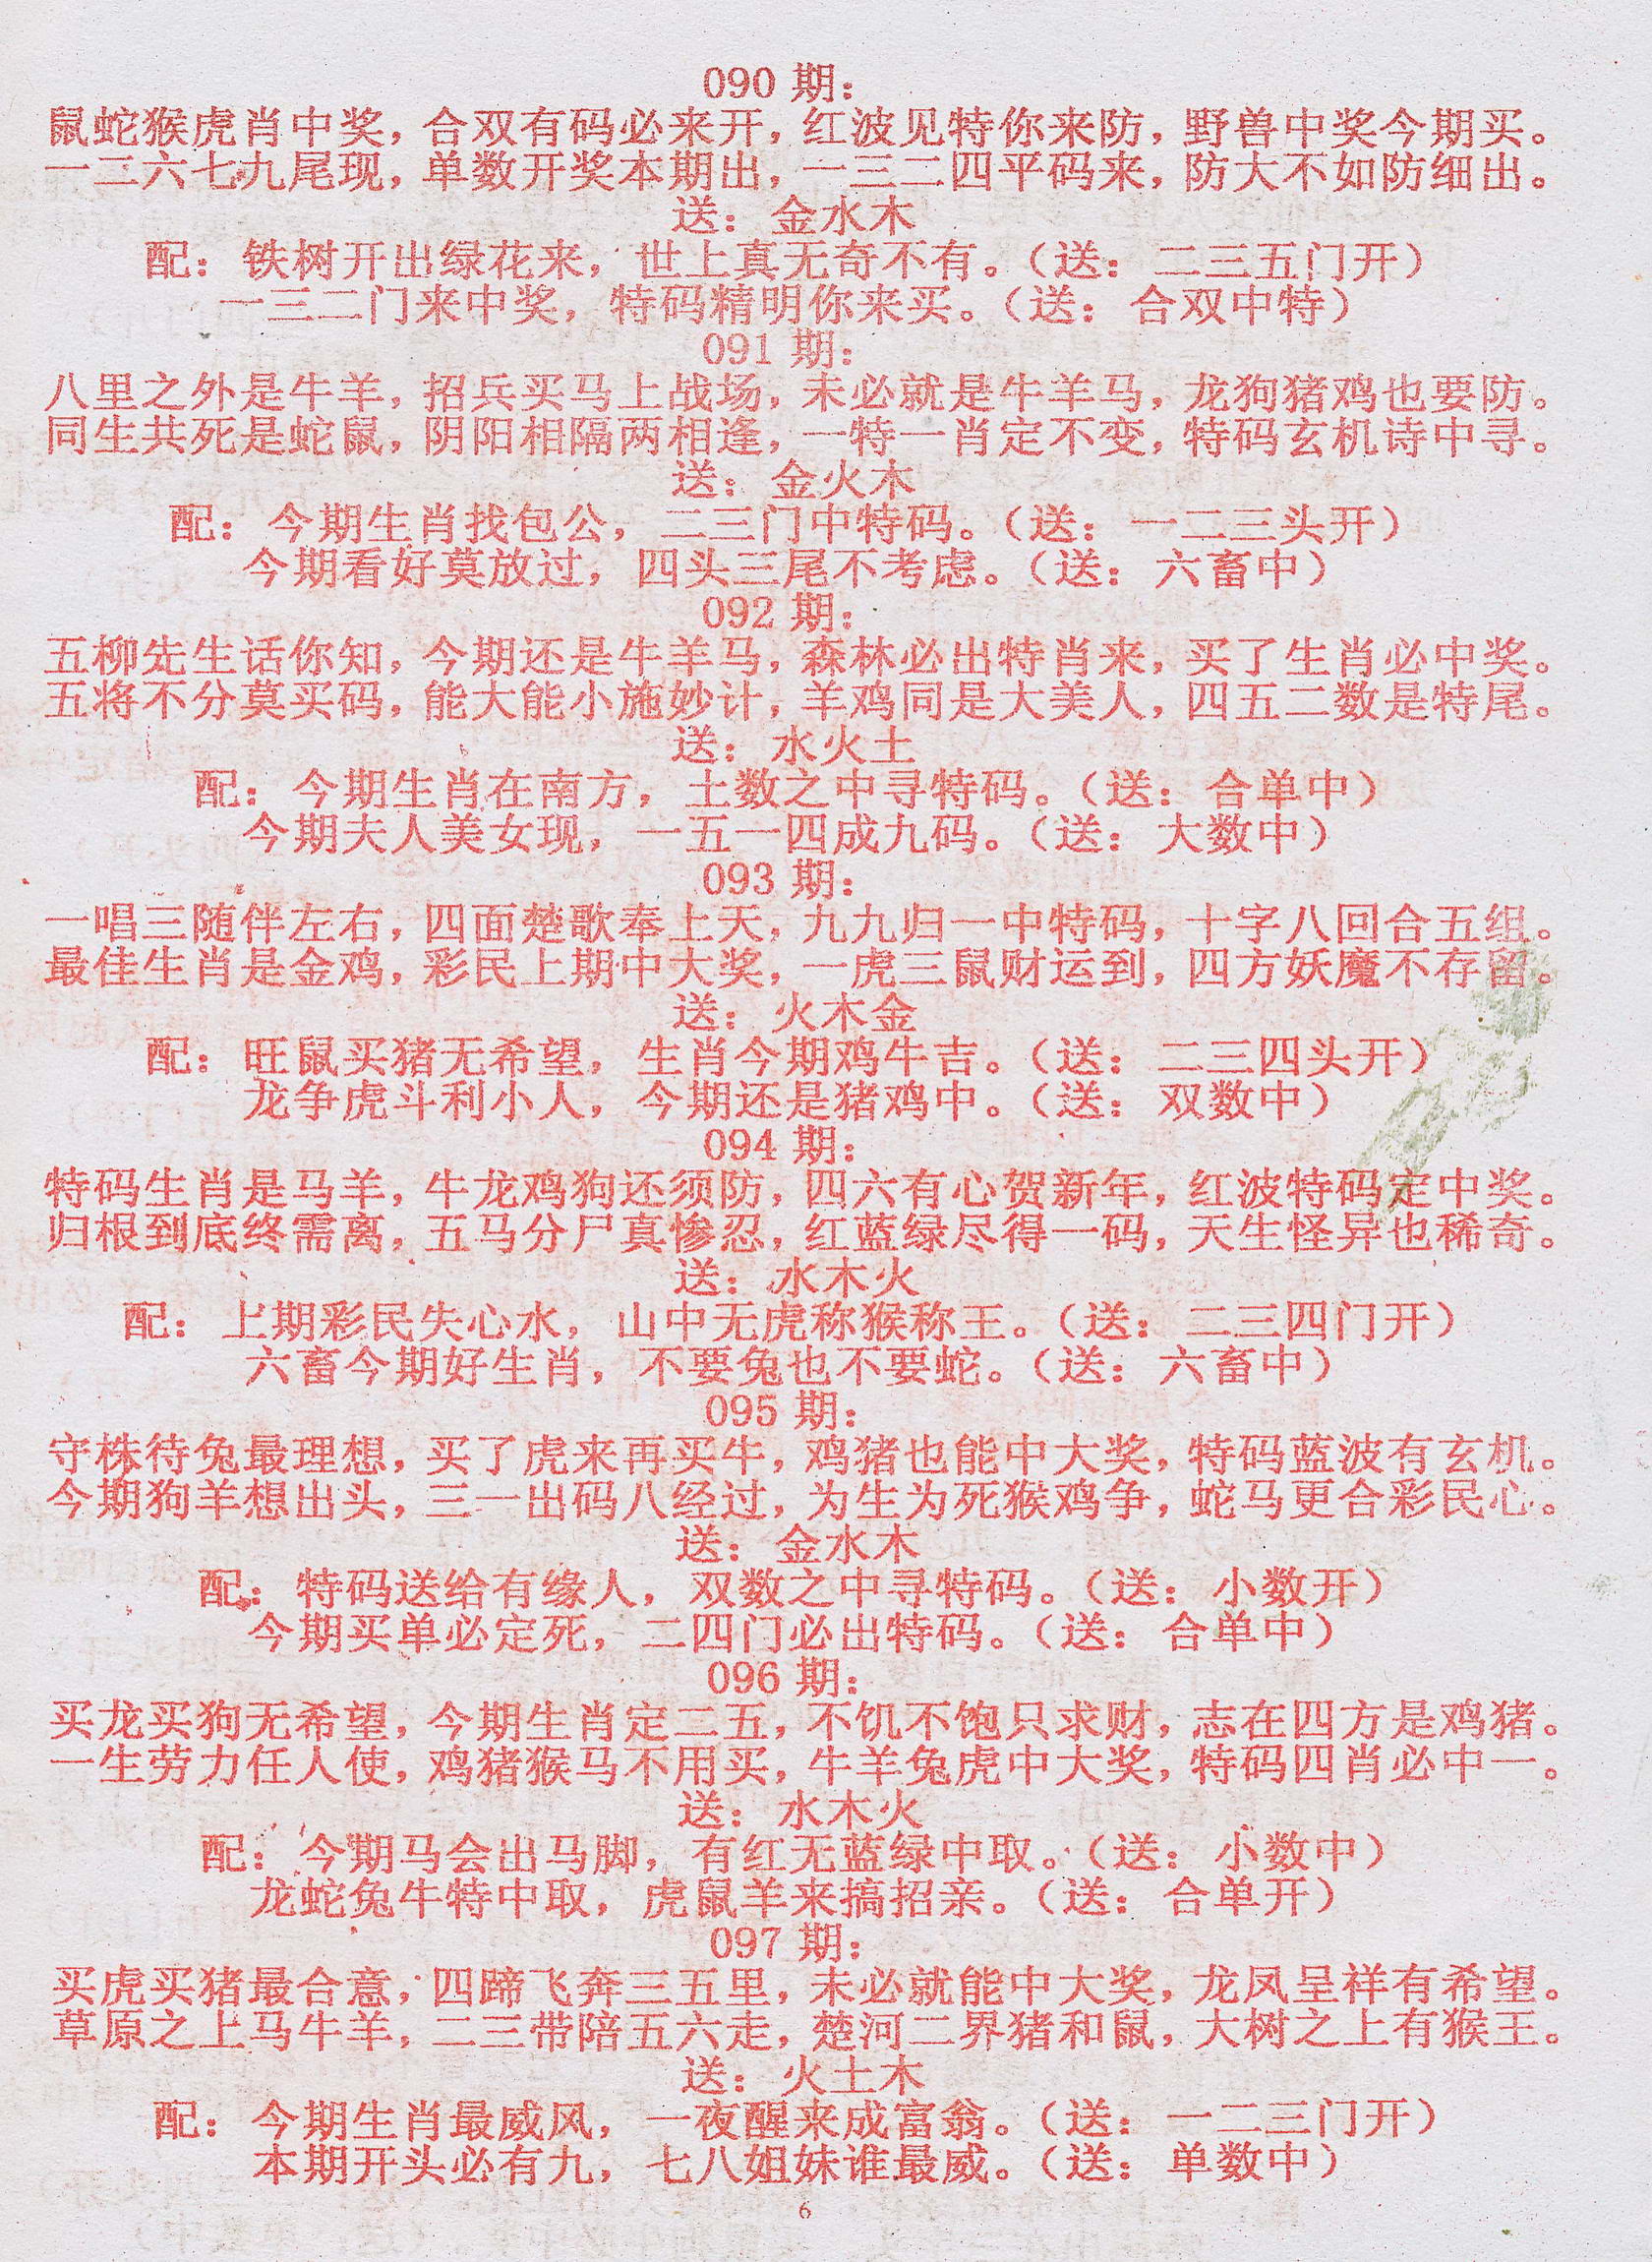 090 期：
鼠蛇猴虎肖中奖，合双有码必来开，红波见特你来防，野兽中奖今期买。
一二六七九尾现，单数开奖本期出，一三二四平码来，防大不如防细出。
送：金水木
配：铁树开出绿花来，世上真无奇不有。（送：二三五门开）
一三二门来中奖，特码精明你来买。（送：合双中特）
091 期：
八里之外是牛羊，招兵买马上战场，未必就是牛羊马，龙狗猪鸡也要防。
同生共死是蛇鼠，阴阳相隔两相逢，一特一肖定不变，特码玄机诗中寻。
送：金火木
配：今期生肖找包公，二三门中特码。（送：一二三头开）
今期看好莫放过，四头三尾不考虑。（送：六畜中）
092 期：
五柳先生话你知，今期还是牛羊马，森林必出特肖来，买了生肖必中奖。
五将不分莫买码，能大能小施妙计，羊鸡同是大美人，四五二数是特尾。
送：水火土
配：今期生肖在南方，土数之中寻特码。（送：合单中）
今期夫人美女现，一五一四成九码。（送：大数中）
093 期：
一唱三随伴左右，四面楚歌奉上天，九九归一中特码，十字八回合五组。
最佳生肖是金鸡，彩民上期中大奖，一虎三鼠财运到，四方妖魔不存留。
送：火木金
配：旺鼠买猪无希望，生肖今期鸡牛吉。（送：二三四头开）
龙争虎斗利小人，今期还是猪鸡中。（送：双数中）
094 期：
特码生肖是马羊，牛龙鸡狗还须防，四六有心贺新年，红波特码定中奖。
归根到底终需离，五马分尸真惨忍，红蓝绿尽得一码，天生怪异也稀奇。
送：水木火
配：上期彩民失心水，山中无虎称猴称王。（送：二三四门开）
六畜今期好生肖，不要兔也不要蛇。（送：六畜中）
095 期：
守株待兔最理想，买了虎来再买牛，鸡猪也能中大奖，特码蓝波有玄机。
今期狗羊想出头，三一出码八经过，为生为死猴鸡争，蛇马更合彩民心。
送：金水木
配：特码送给有缘人，双数之中寻特码。（送：小数开）
今期买单必定死，二四门必出特码。（送：合单中）
096 期：
买龙买狗无希望，今期生肖定二五，不饥不饱只求财，志在四方是鸡猪。
一生劳力任人使，鸡猪猴马不用买，牛羊兔虎中大奖，特码四肖必中一。
送：水木火
配：今期马会出马脚，有红无蓝绿中取。（送：小数中）
龙蛇兔牛特中取，虎鼠羊来搞招亲。（送：合单开）
097 期：
买虎买猪最合意，四蹄飞奔三五里，未必就能中大奖，龙凤呈祥有希望。
草原之上马牛羊，二三带陪五六走，楚河二界猪和鼠，大树之上有猴王。
送：火土木
配：今期生肖最威风，一夜醒来成富翁。（送：一二三门开）
本期开头必有九，七八姐妹谁最威。（送：单数中）
6